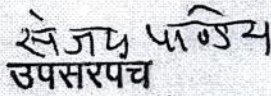 संजय पाण्डेय
उपसरपंच